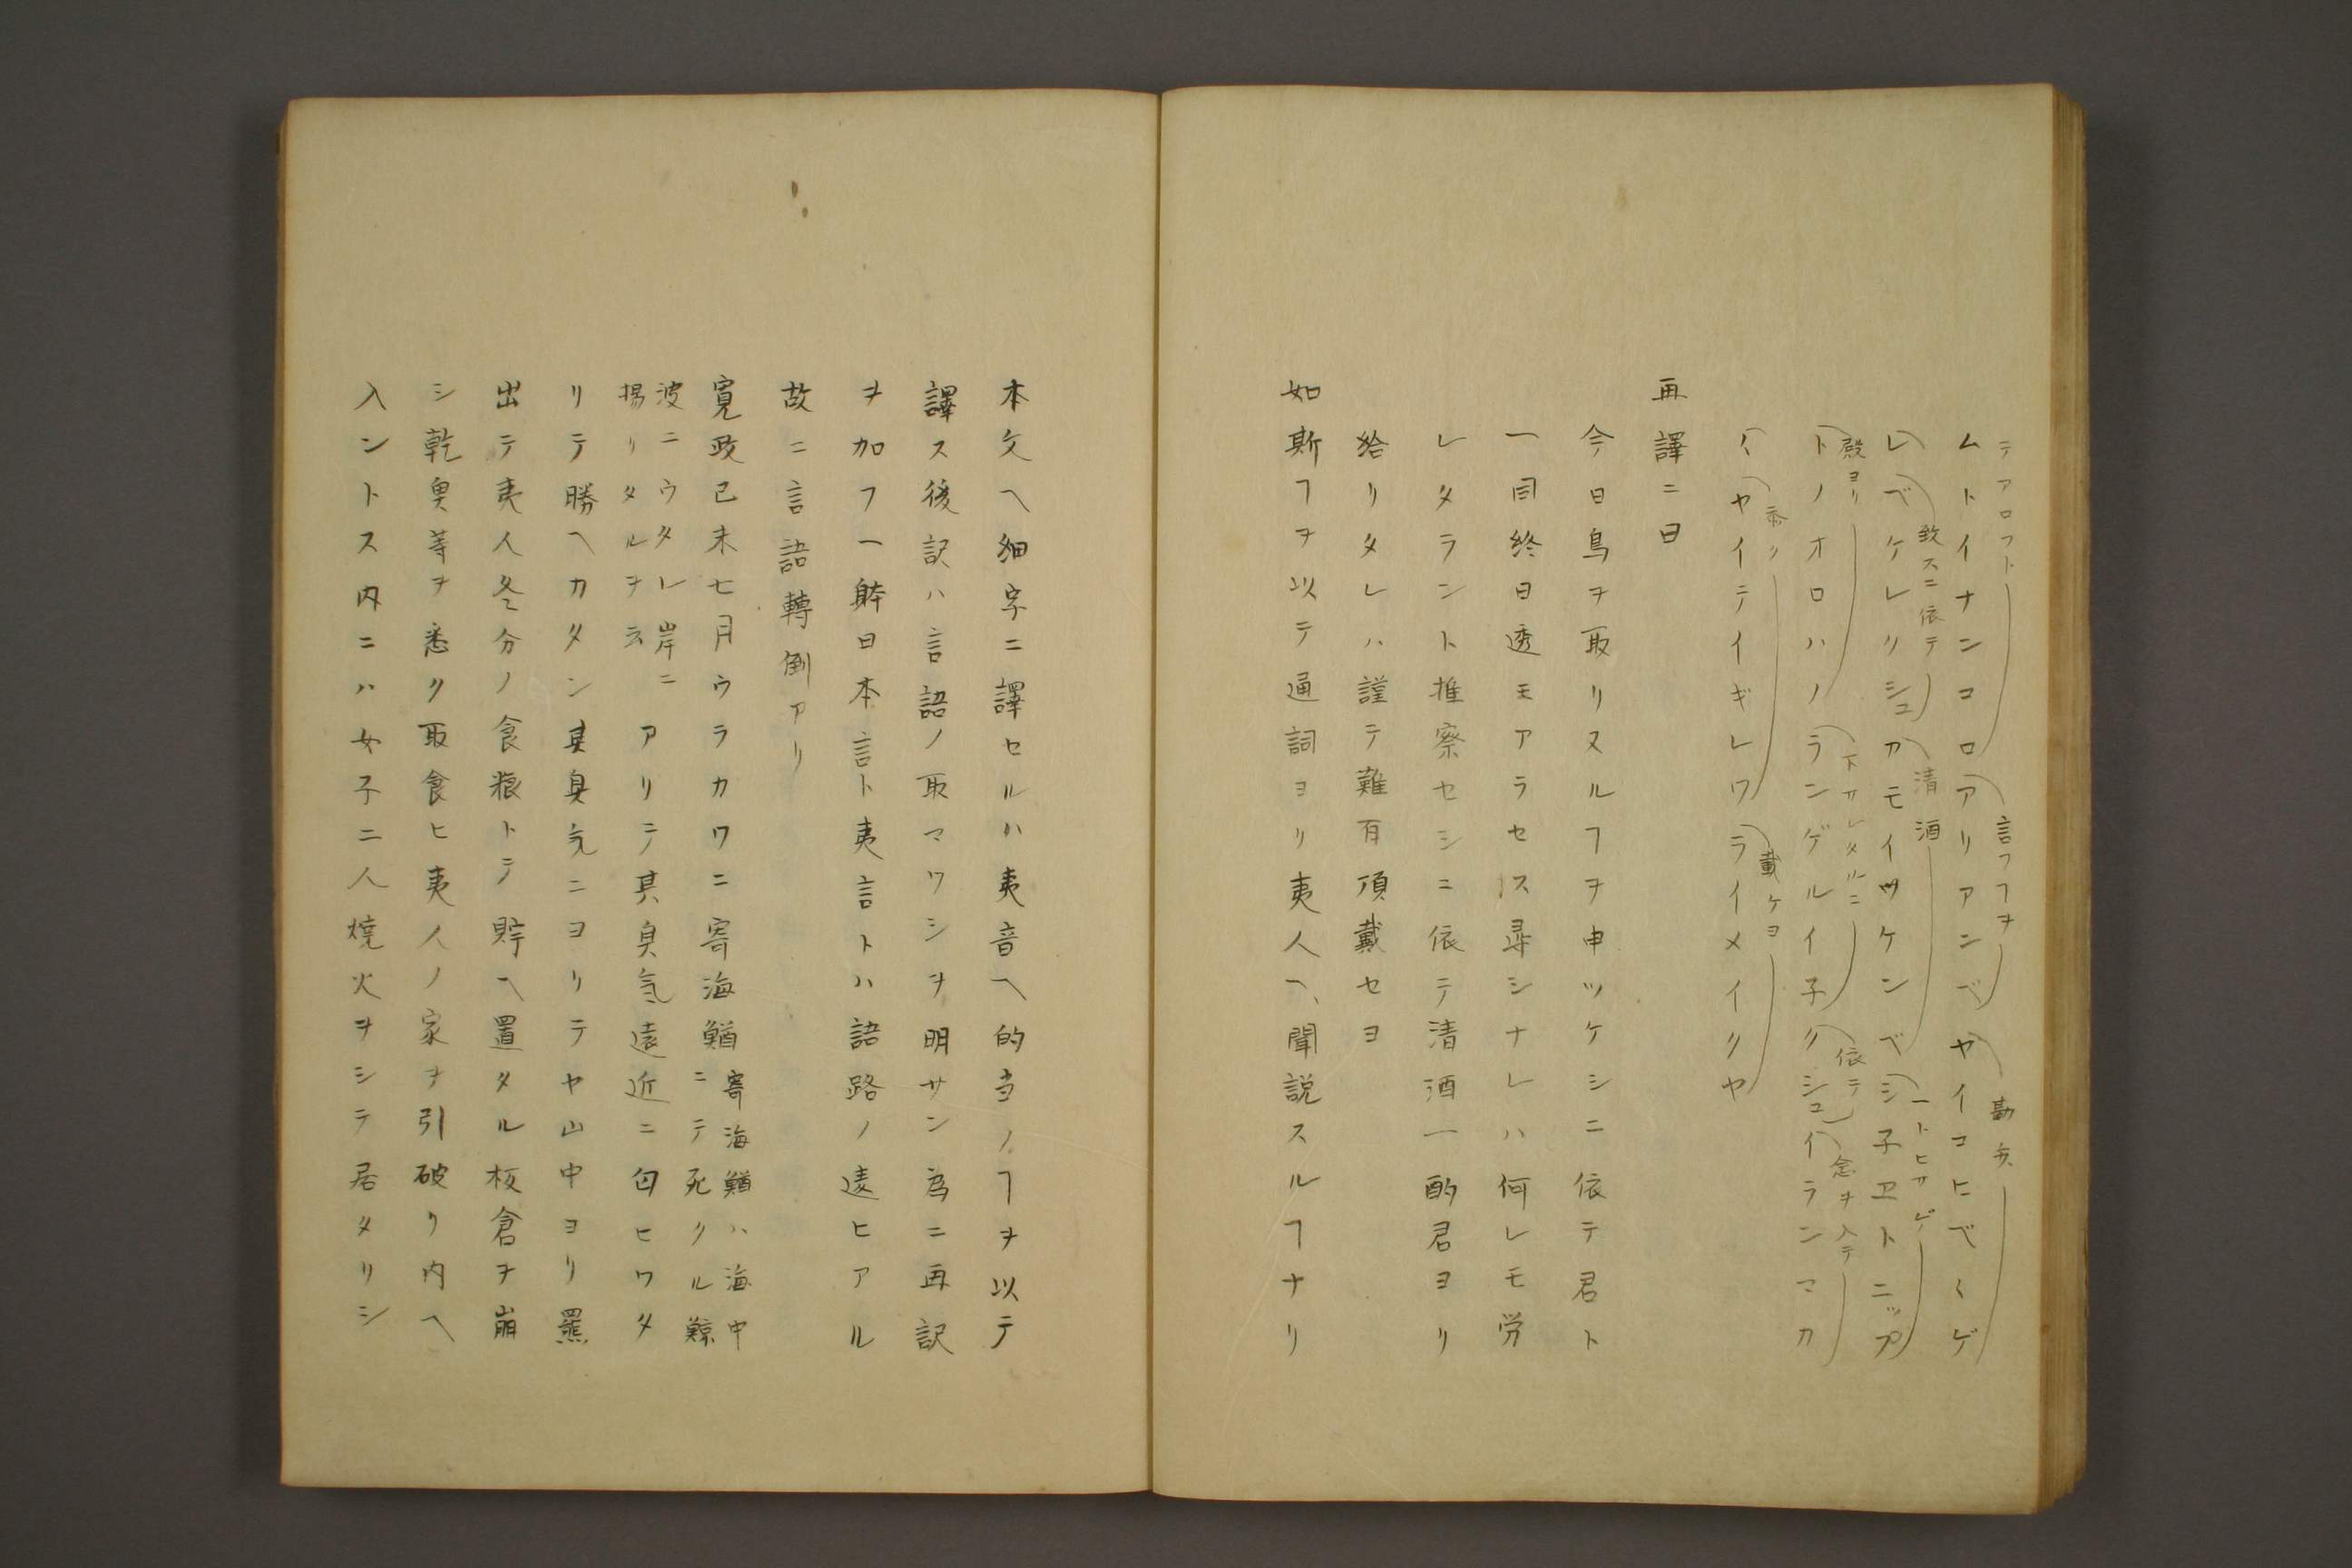 テアロフト
言フヿヲ
勘弁
ムトイナンコロアリアンベヤイコヒベくゲ
致スニ依テ
清酒
一トヒサゲ
レベケレリシユカモイツケンベシ子ヱトニツプ
殿ヨリ
下サレタルニ
依テ
念ヲ入テ
トノオロハノランゲルイ子クシユイランマカ
ノ
戴ケヨ
くヤイテイギレワライメイクヤ
再譯ニ曰
今日鳥ヲ取リヌルヿヲ申ツケシニ依テ君ト
一同終日透モアラセス尋シナレハ何レモ労
レタラント推察セシニ依テ清酒一酌君ヨリ
給リタレハ謹テ難有頂戴セヨ
如斯ヿヲ以テ通詞ヨリ夷人ヘ聞説スルヿナリ
本文ヘ細字ニ譯セルハ夷音ヘ的当ノヿヲ以テ
譯ス後訳ハ言語ノ取マワシヲ明サン為ニ再訳
ヲ加フ一躰日本言ト夷言トハ語路ノ違ヒアル
故ニ言語轉倒アリ
寛政己未七月ウラカワニ寄海鰌
寄海鰌ハ海中
ニテ死クル鯨
波ニウタレ岸ニ
揚リタルヲ云
アリテ其臭氣遠近ニ匂ヒワタ
リテ勝ヘカタン其臭氣ニヨリテヤ山中ヨリ羆
出テ夷人冬分ノ食粮トテ貯ヘ置タル板倉ヲ崩
シ乾臭等ヲ悉ク取食ヒ夷人ノ家ヲ引破リ内ヘ
入ントス内ニハ女子二人焼火ヲシテ居タリシ